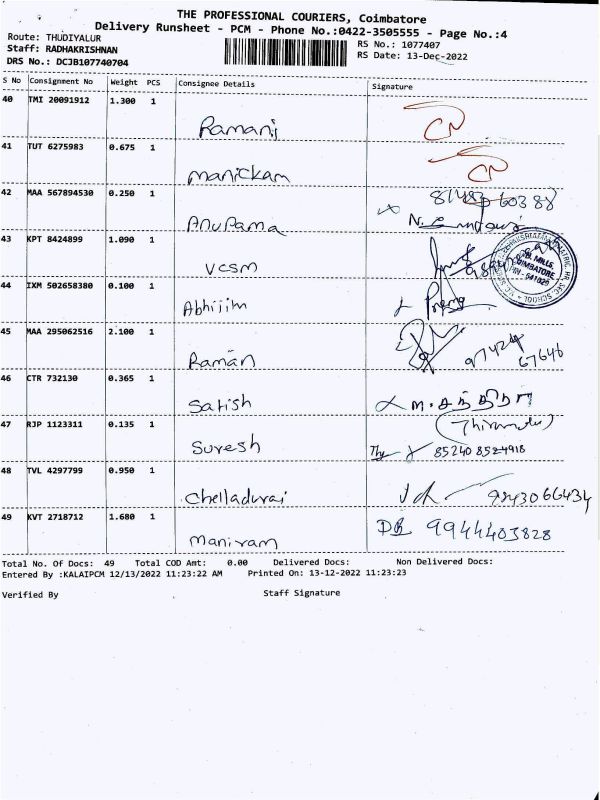 THE PROFESSIONAL COURIERS, Coimbatore
Delivery Runsheet - PCM - Phone No.:0422-3505555 - Page No.:4
Route: THUDIYALUR
Staff: RADHAKRISHNAN
DRS No.: DCJB107740704
RS No.: 1077407
RS Date: 13-Dec-2022
S No Consignment No Weight PCS Consignee Details Signature
40 TMI 20091912 1.300 1
Ramani CN
41 TUT 6275983 0.675 1
Manickam CN
42 MAA 567894530 0.250 1
Anupama
43 KPT 8424899 1.090 1
VCSM
44 IXM 502658380 0.100 1
Abhijim Prema
45 MAA 295062516 2.100 1
Raman 97424 67646
46 CTR 732130 0.365 1
Satish
47 RJP 1123311 0.135 1
Suresh 85240 8524918
48 TVL 4297799 0.950 1
Chelladurai 9843066434
49 KVT 2718712 1.680 1
Maniram DB 9944403828
Total No. Of Docs: 49 Total COD Amt: 0.00 Delivered Docs: Non Delivered Docs:
Entered By :KALAIPCM 12/13/2022 11:23:22 AM Printed On: 13-12-2022 11:23:23
Verified By Staff Signature